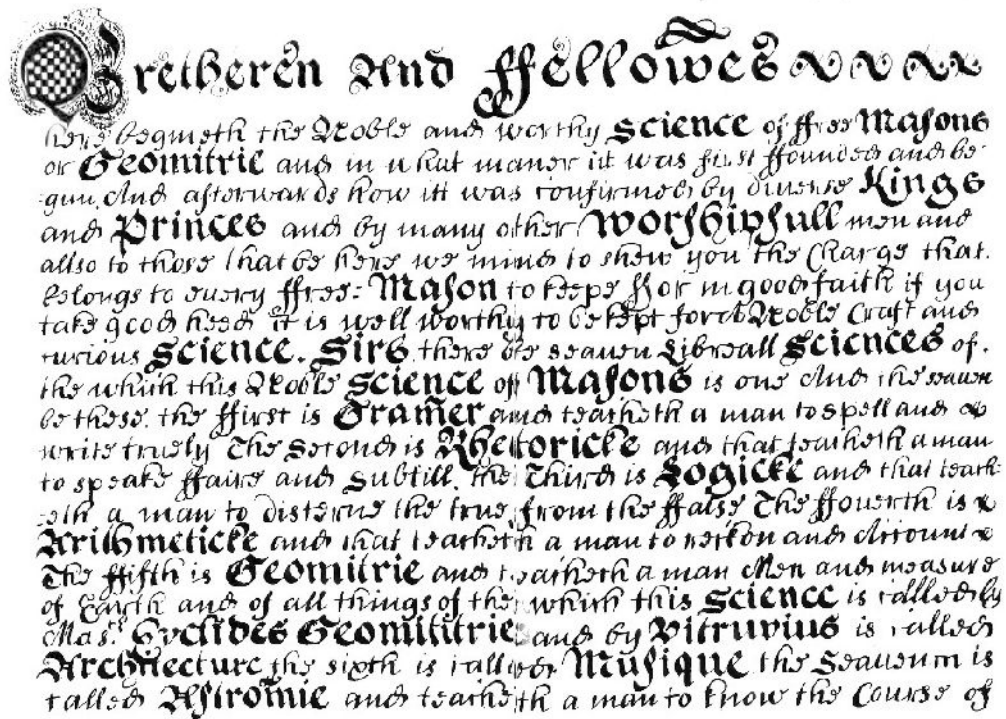 Bretheren And ffellowes
here begineth the Noble and worthy Science of ffree Masons
or Geomitrie and in what maner itt was first ffounded and be-
gun, And afterwards how itt was confirmed by diverse Kings
and Princes and by many other Worshipfull men and
allso to those that be here we mind to shew you the Charge that
belongs to euery ffree: Mason to keepe ffor in good faith if you
take good heed it is well worthy to be kept for a Noble Craft and
curious Science. Sirs there be seauen Libreall Sciences of
the which this Noble Science of Masons is one And the seauen
be these. the ffirst is Gramer and teacheth a man to spell and
write truely The Second is Rhetoricke and that teacheth a man
to speake ffaire and Subtill, the Third is Logicke and that teach-
eth a man to discerne the true from the ffalse The ffouerth is
Arithmeticke and that teacheth a man to reckon and Account
The ffifth is Geomitrie and teacheth a man Men and measure
of Earth and of all things of the which this Science is called by
Mas.r Evclides Geomititrie and by Vitruvius is called
Architecture the sixth is called Musique the Seauenth is
called Astromie and teacheth a man to know the Course of